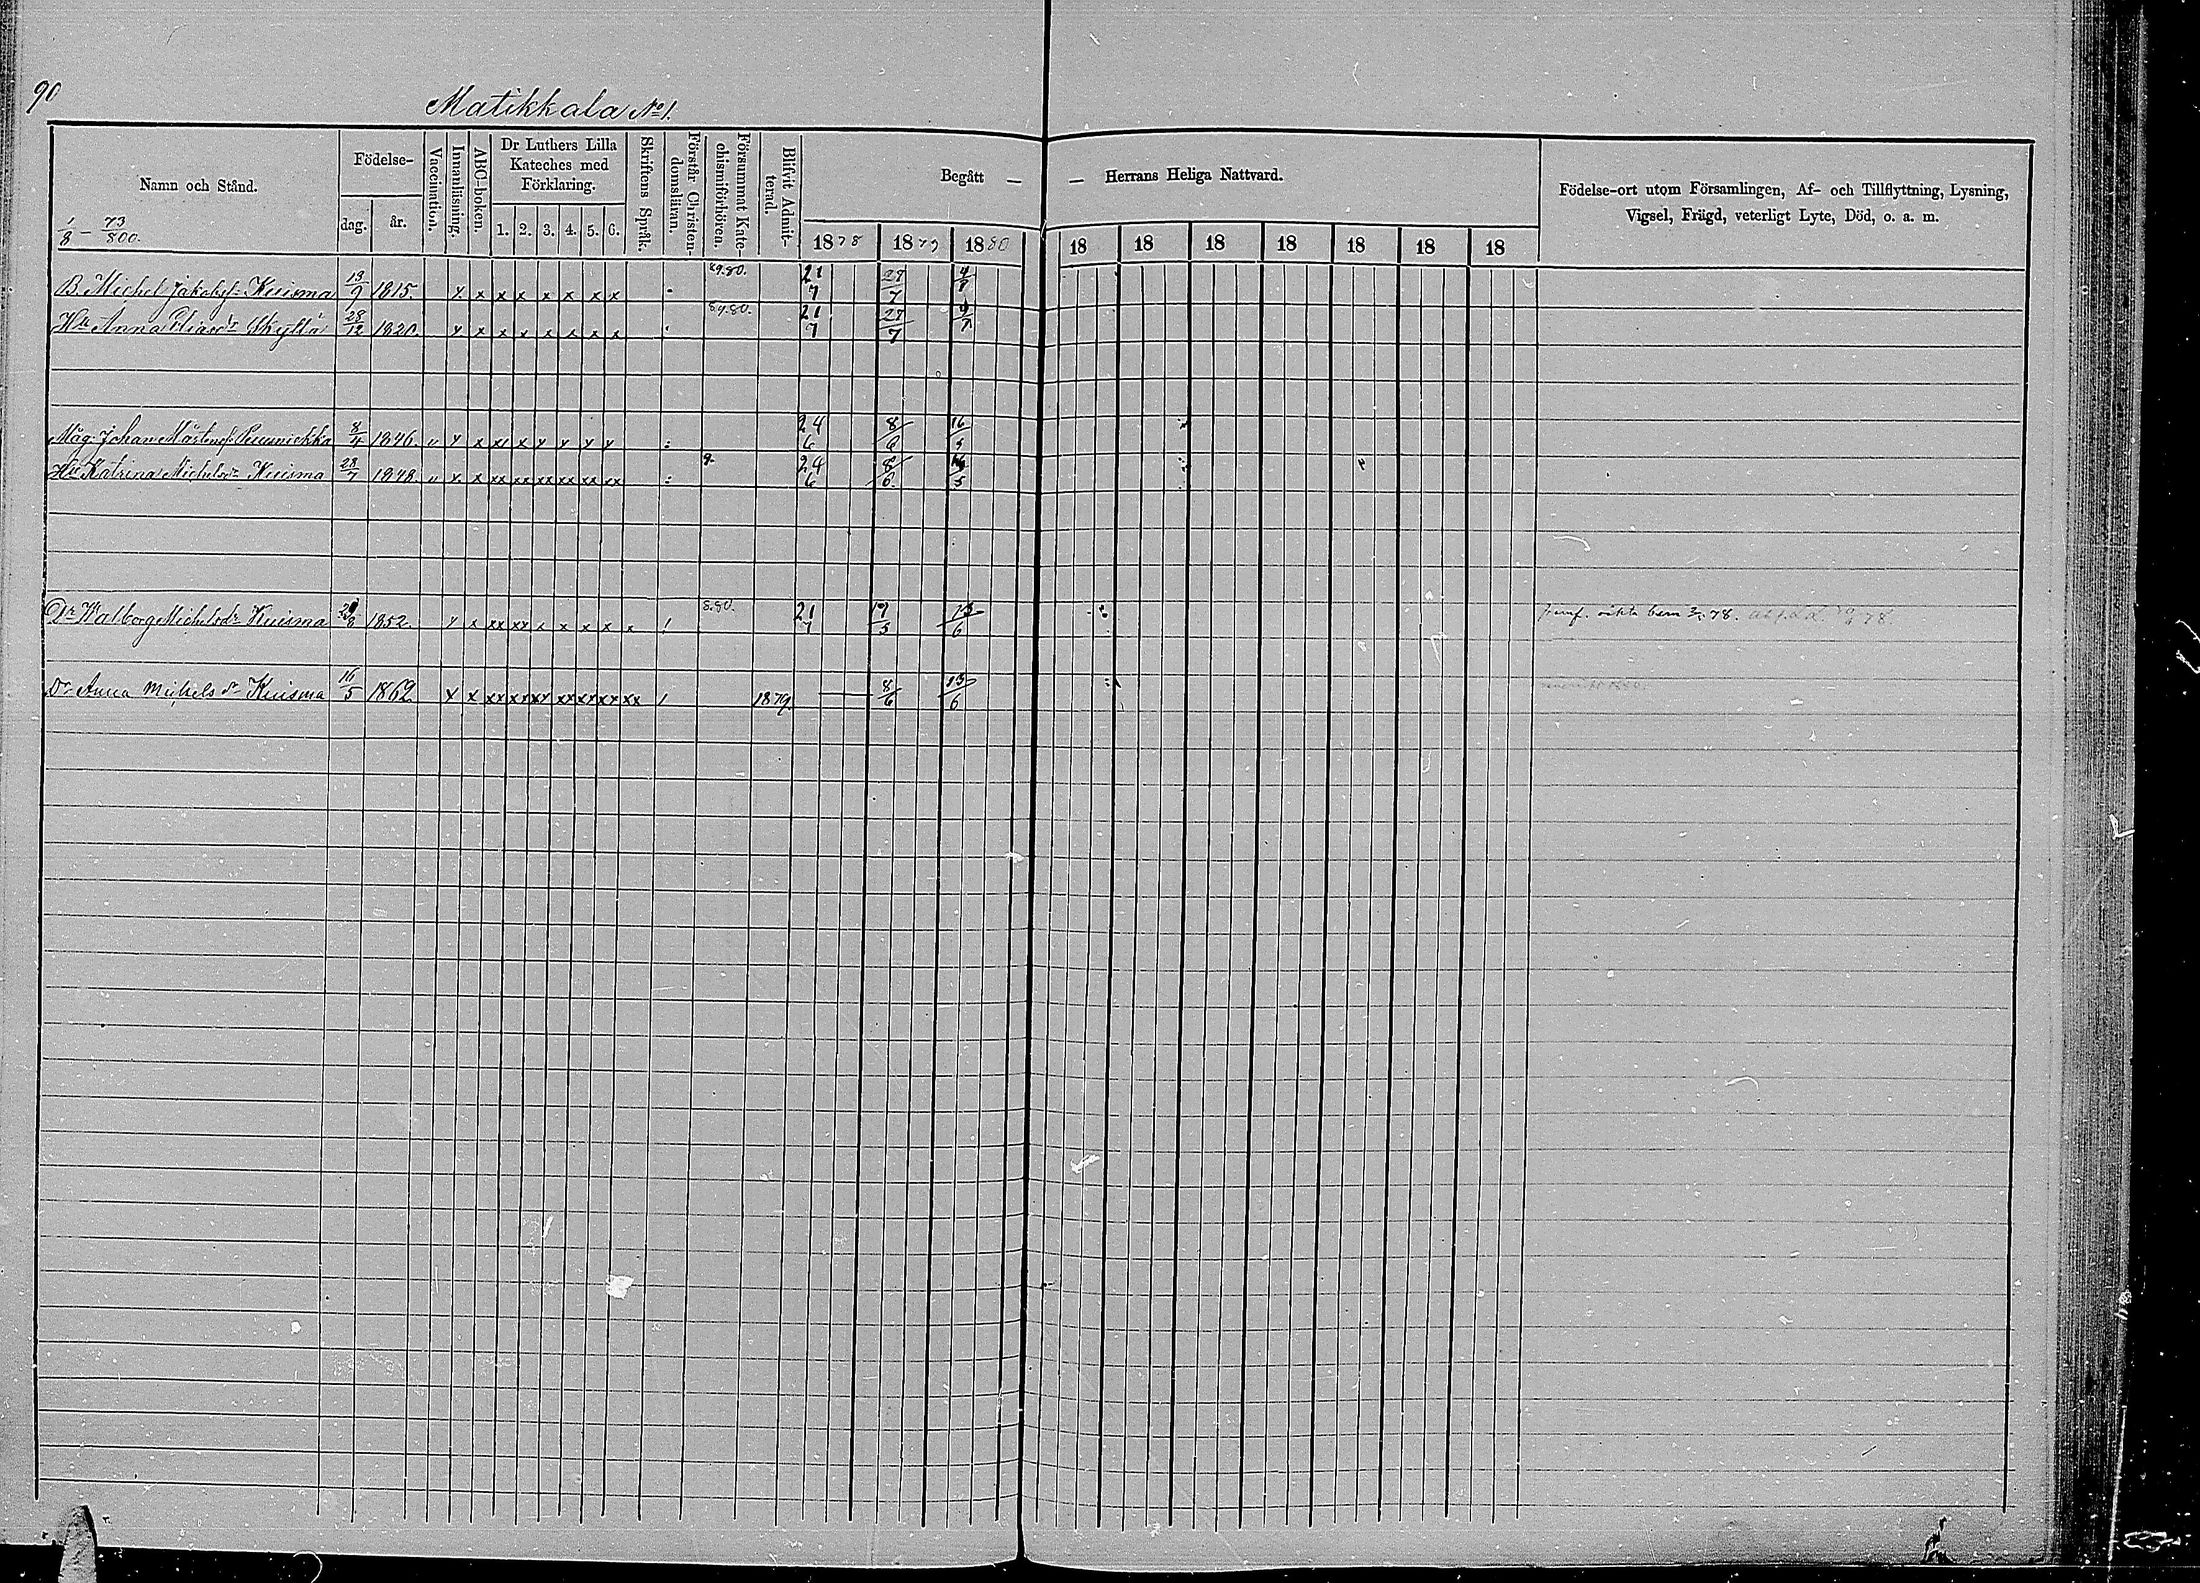 90
Matikkala No 1.
Namn och Stånd.
1/8 – 73/800.
Födelse-
dag. år.
Vaccination.
Innanläsning.
ABC-boken.
Dr Luthers Lilla
Kateches med
Förklaring.
1. 2. 3. 4. 5. 6.
Skriftens Språk.
Förstår Christen-
domsläran.
Försummat Kate-
chismiförhören.
Blifvit Admit-
terad.
Begått — — Herrans Heliga Nattvard.
1878 1879 1880 18 18 18 18 18 18 18
Födelse-ort utom Församlingen, Af- och Tillflyttning, Lysning,
Vigsel, Frägd, veterligt Lyte, Död, o. a. m.
B. Michel Jakobss. Kuisma 13/9 1815. x x x x x x x x 21/7 27/7 4/7
Hu Anna Skyttä 28/12 1820. x x x x x x x x 8.9.80. 21/7 27/7 4/7
Måg. Johan Mårtenss. 8/4 1846 " x x x x x x x x 24/6 8/6 16/5
Hu Katrina Michelsdr Kuisma 28/7 1848 " x x xx xx xx xx xx xx 9. 24/6 8/6 16/5
Dr Walborg Michelsdr Kuisma 1852. x x xx xx x x x x x 8.80. 21/7 13/6
Dr Anna Michelsdr Kuisma 16/5 1862 x x xx xx xx xx xx xx xx 1879 — 8/6 13/6